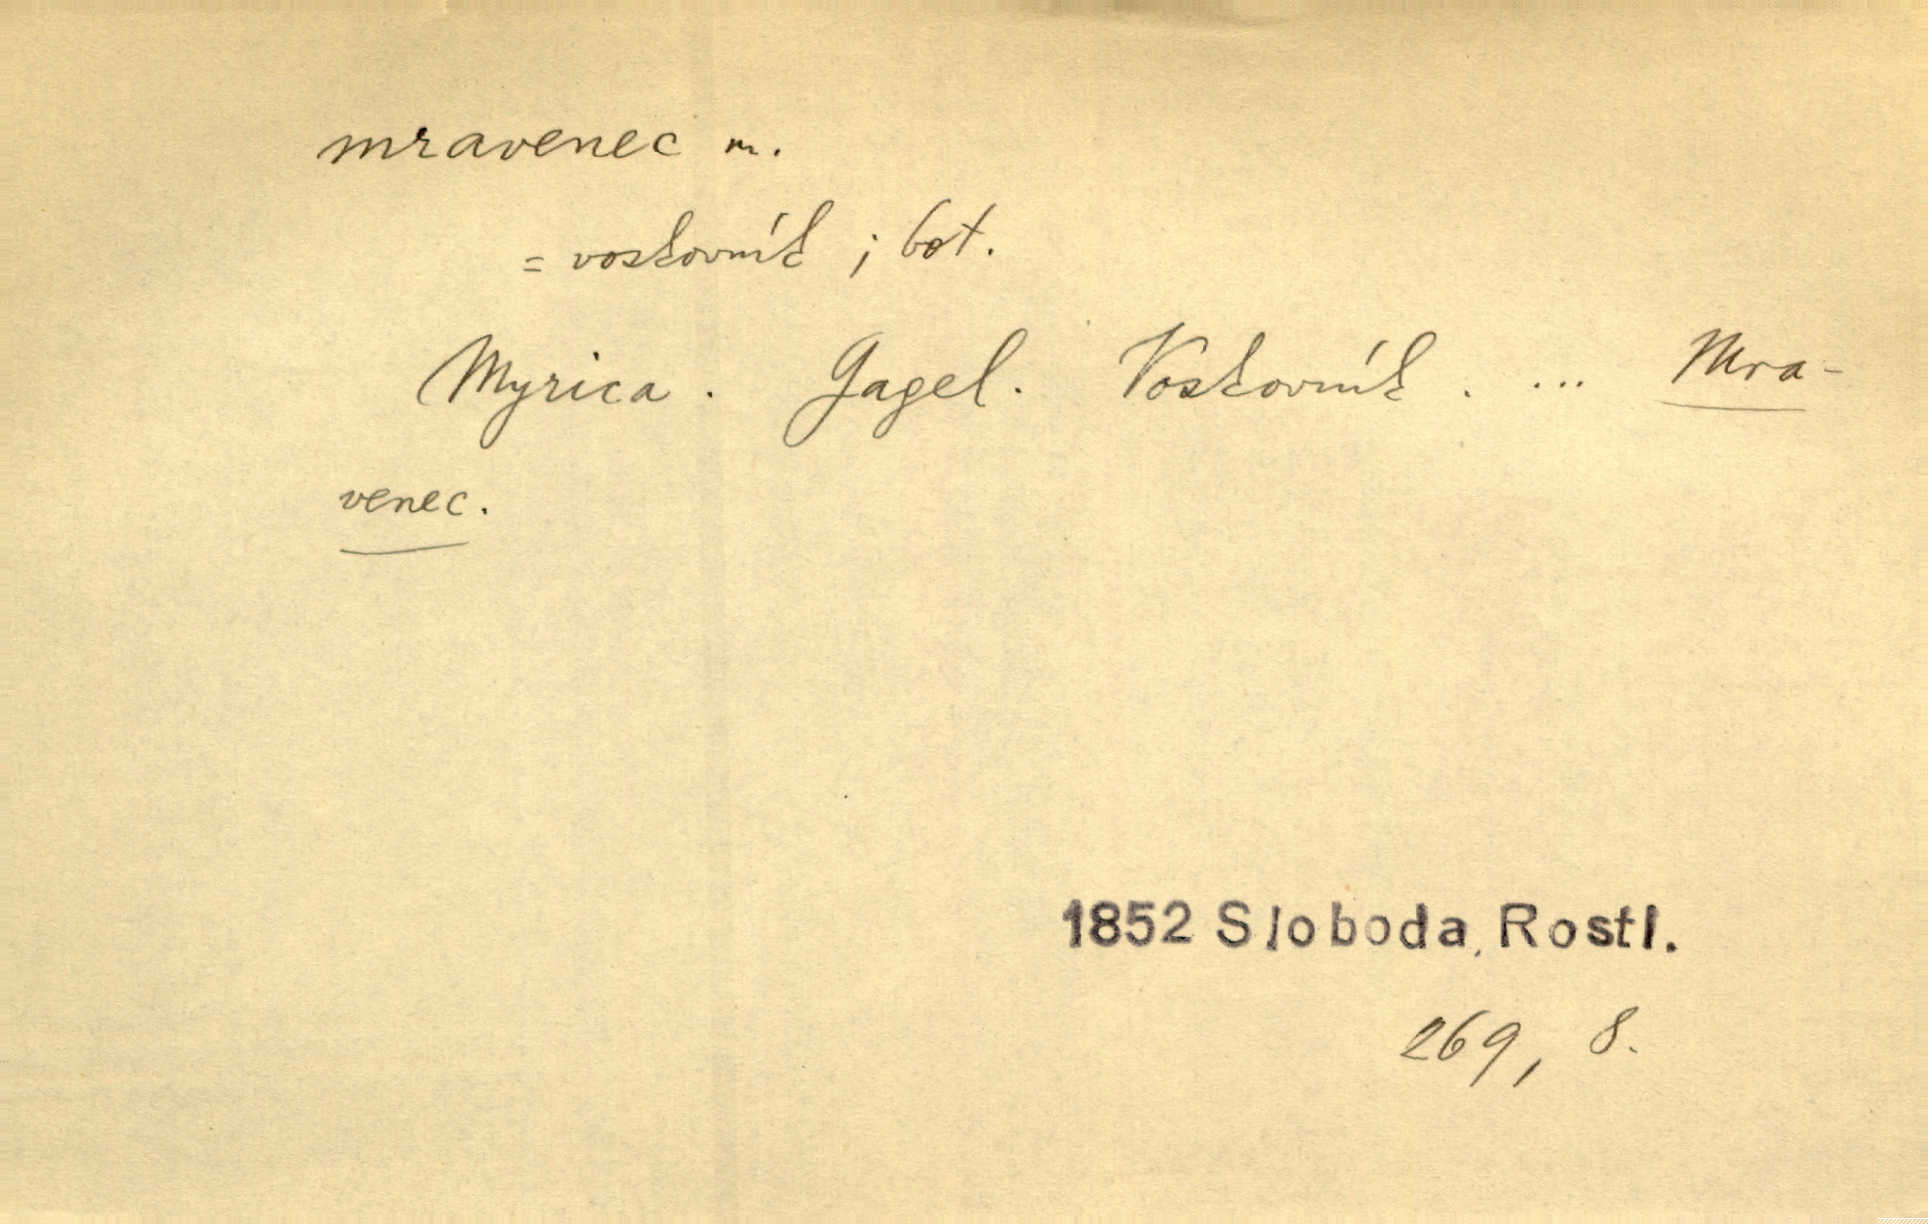 mravenec m.
= voskovník ; bot.
Myrica. Gagel. Voskovník. ... Mra-
venec.
1852 Sloboda, Rostl.
269, 8.